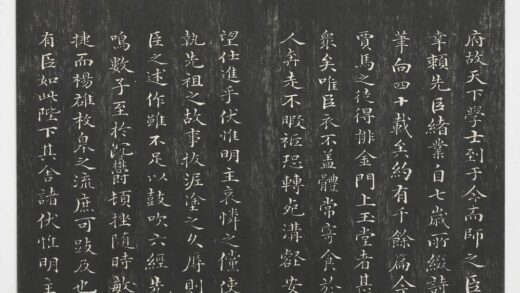 府故天下學士到于今而師之臣
幸賴先臣緒業自七歲所綴詩
筆向四十載矣約有千餘篇今
賈馬之徒得排金門上玉堂者甚
衆矣唯臣衣不蓋體常寄食於
人奔走不暇秪恐轉死溝壑安
望仕進乎伏惟明主哀憐之儻使
執先祖之故事拔泥塗之久辱則
臣之述作雖不足以鼓吹六經先
鳴數子至於沉鬱頓挫隨時敏
捷而楊雄枚臯之流庶可跂及也
有臣如此陛下其舍諸伏惟明主